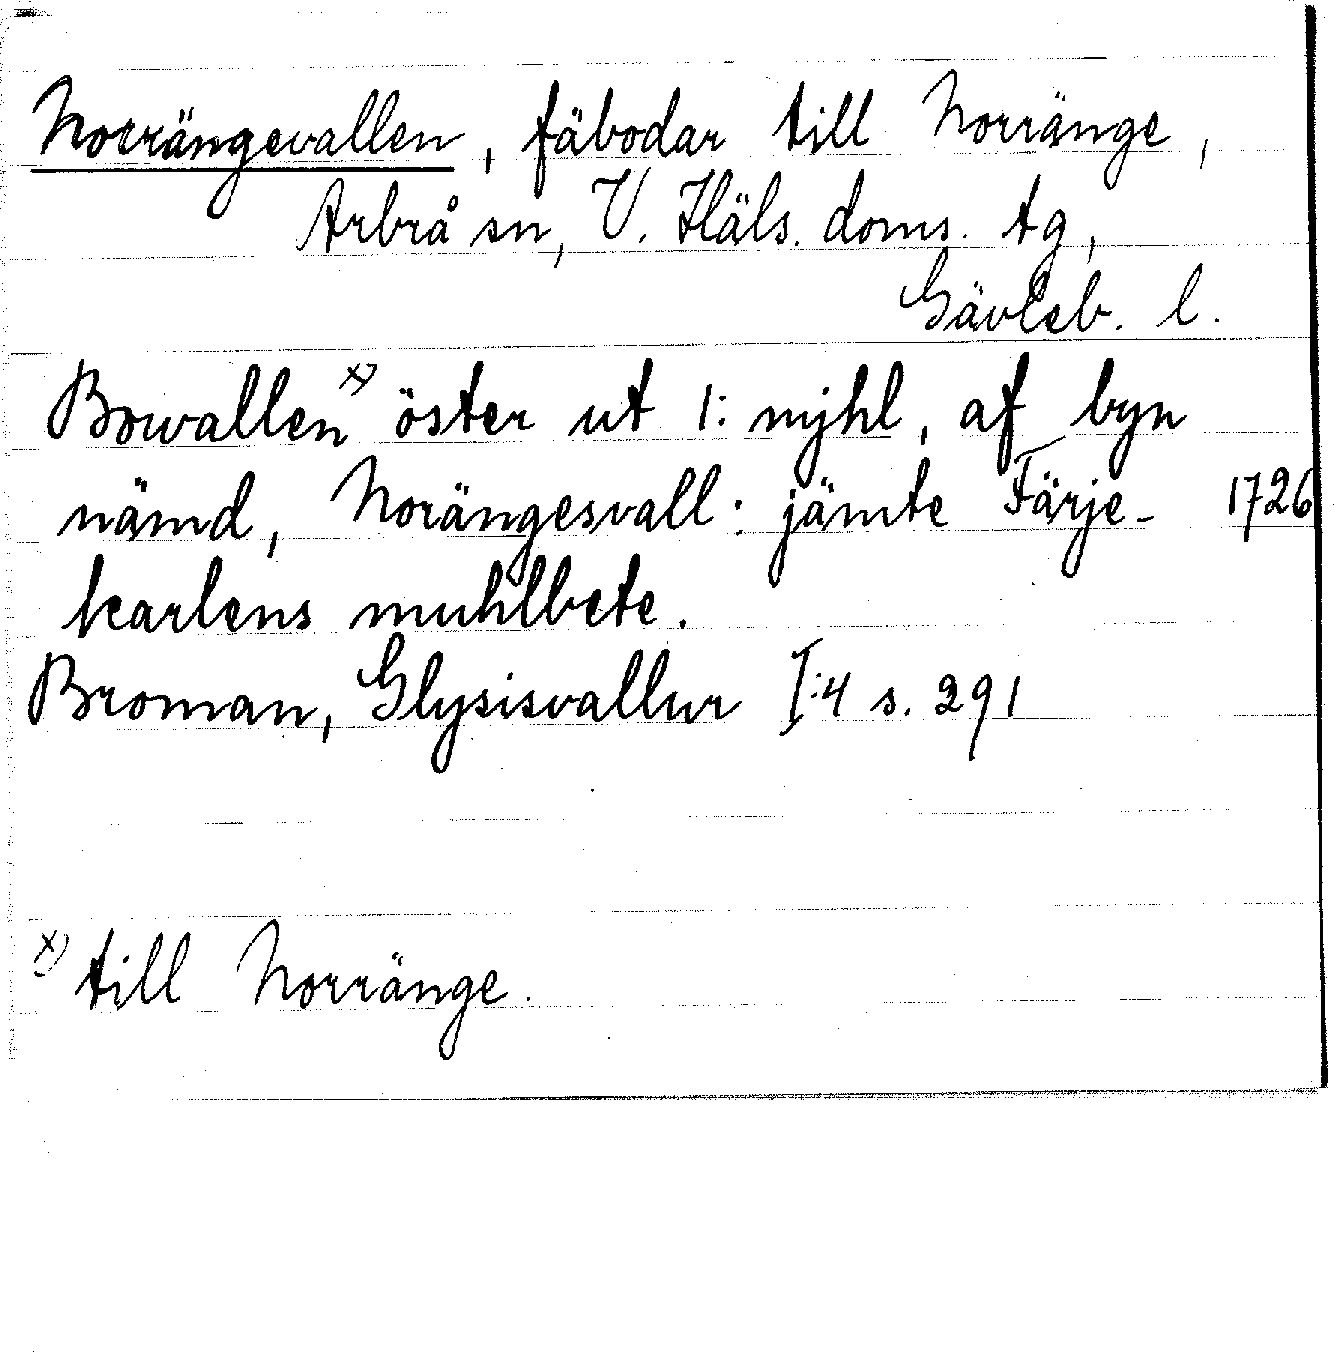 Norrängevallen, fäbodar till Norränge,
Arbrå sn, V. Häls. doms. tg,
Gävleb. l.
Bowallen x) öster ut 1: mÿhl, af byn
nämd, Norängesvall: jämte Färje- 1726
karlens muhlbete.
Broman, Glysisvallur I:4 s. 291
x) till Norränge.